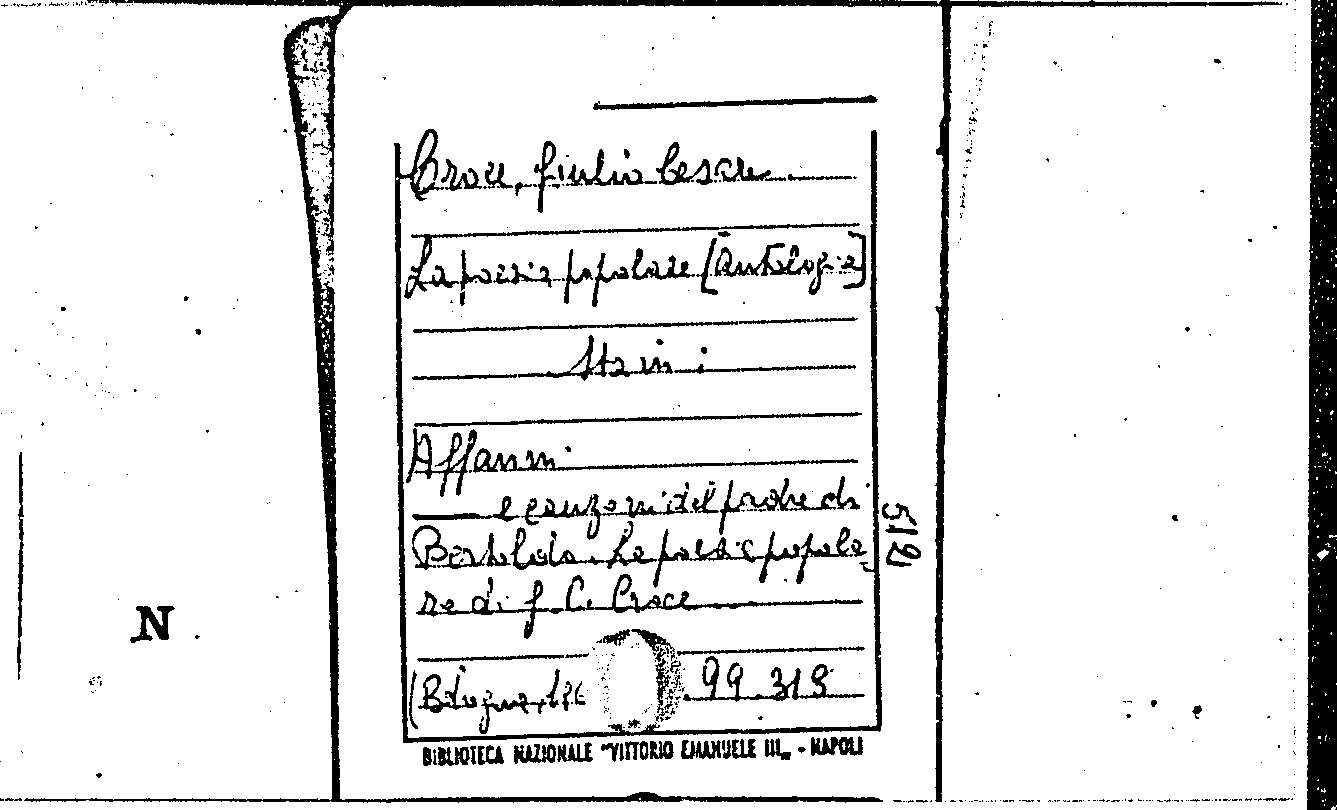 Croce, Giulio Cesare.
La poesia popolare [Antologia]
Affanni
e canzoni del padre di
Bertoldo. La poesia popola-
re di G. C. Croce
(Bologna, 99 318
512
N
BIBLIOTECA NAZIONALE "VITTORIO EMANUELE III„ - NAPOLI